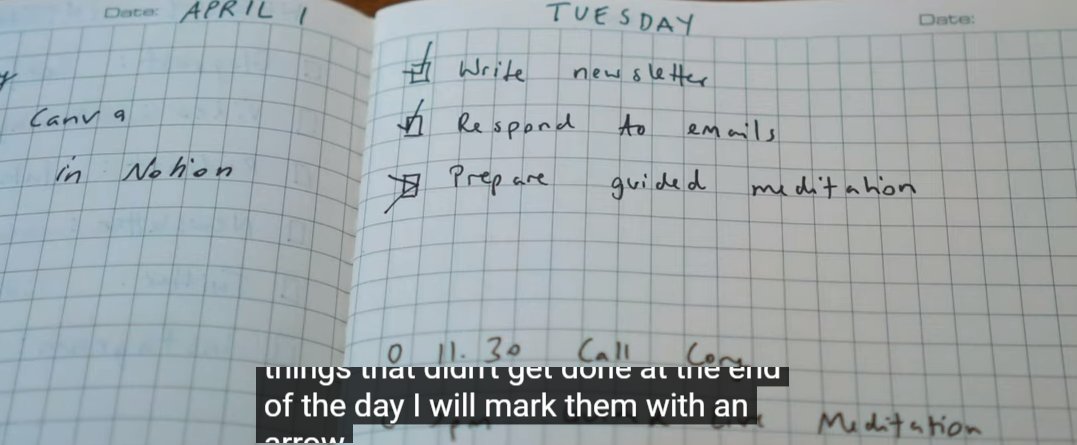 Date: APRIL 1
Canva
in Notion
TUESDAY
Date:
Write newsletter
Respond to emails
Prepare guided meditation
0 11.30 Call Cory
Meditation
things that didn't get done at the end
of the day I will mark them with an
arrow